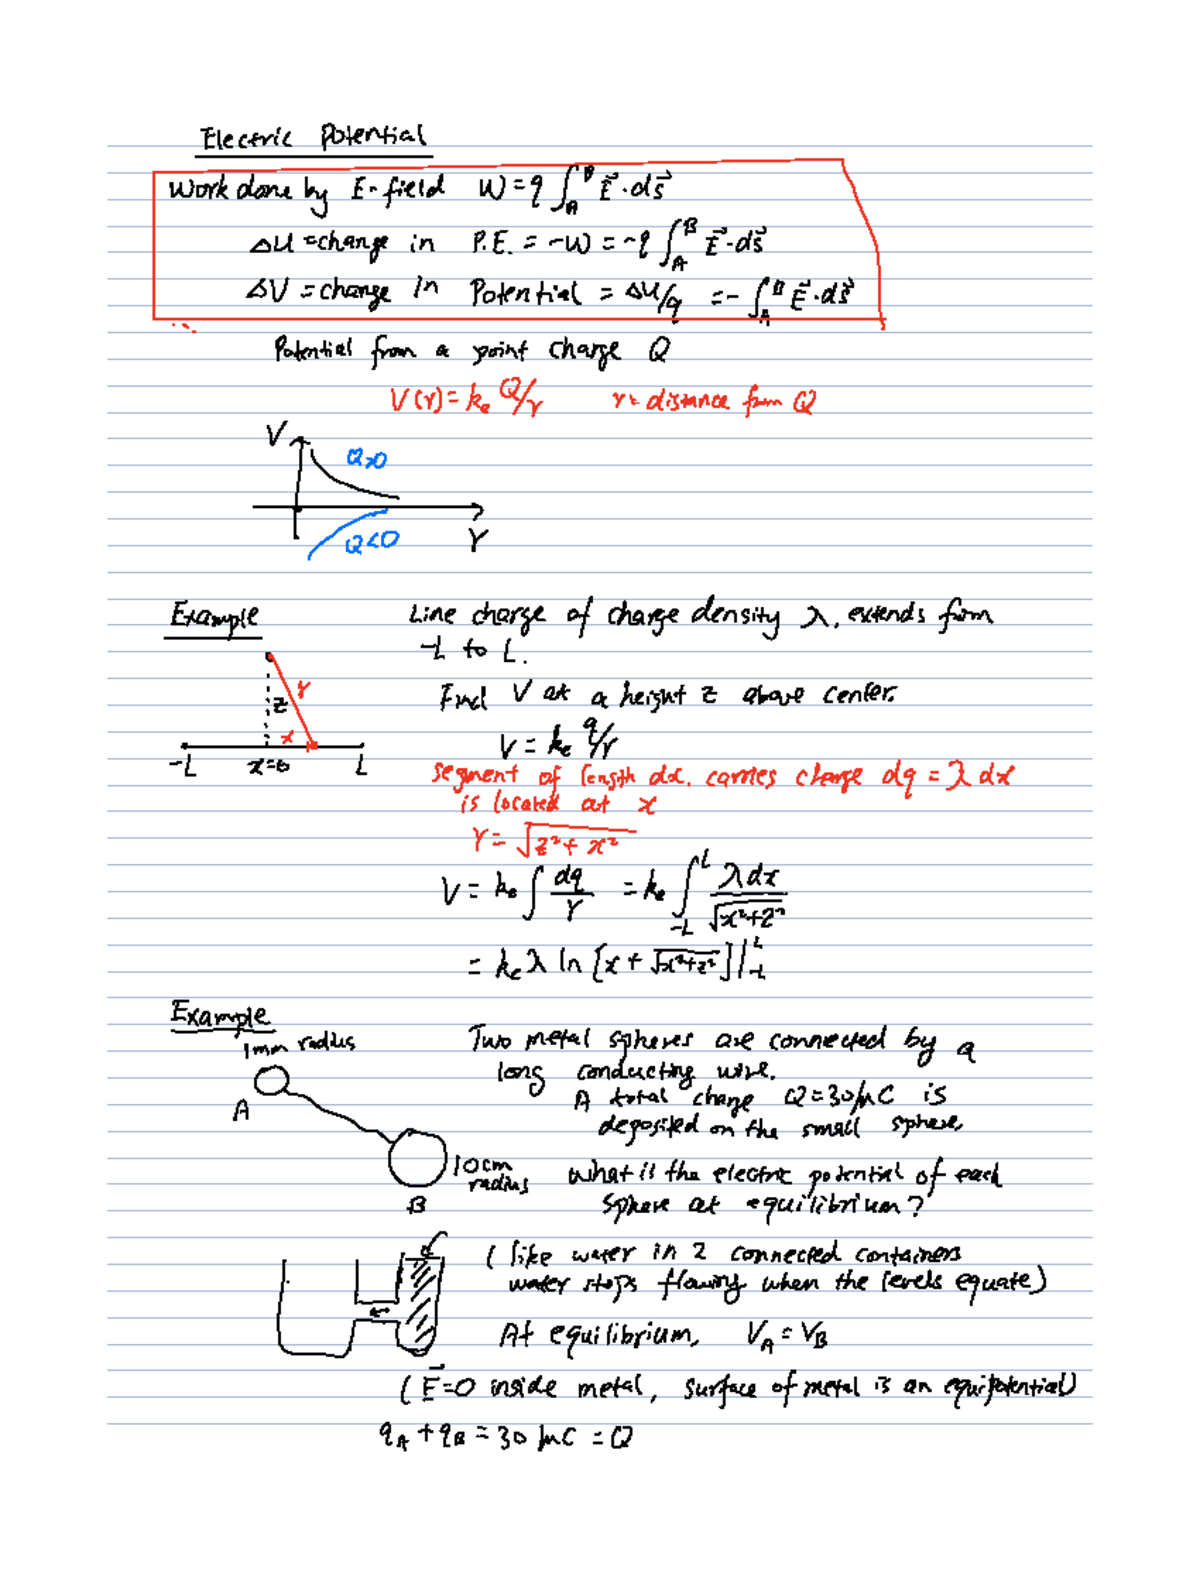 Electric Potential
Work done by E-field W = q ∫_A^B E⃗·ds⃗
ΔU = change in P.E. = -W = -q ∫_A^B E⃗·ds⃗
ΔV = change in Potential = ΔU/q = - ∫_A^B E⃗·ds⃗
Potential from a point charge Q
V(r) = k_e Q/r r = distance from Q
V
Q>0
Q<0
r
Example
Line charge of charge density λ, extends from
-L to L.
Find V at a height z above center.
r
z
x
-L x=0 L
V = k_e q/r
segment of length dx, carries charge dq = λ dx
is located at x
r = √(z²+x²)
V = k_e ∫ dq/r = k_e ∫_{-L}^{L} λdx/√(x²+z²)
= k_e λ ln [x + √(x²+z²)]|_{-L}^{L}
Example
1mm radius
A
10cm
radius
B
Two metal spheres are connected by a
long conducting wire.
A total charge Q=30μC is
deposited on the small sphere.
What is the electric potential of each
sphere at equilibrium?
(like water in 2 connected containers
water stops flowing when the levels equate)
At equilibrium, V_A = V_B
(E⃗=0 inside metal, surface of metal is an equipotential)
q_A + q_B = 30 μC = Q